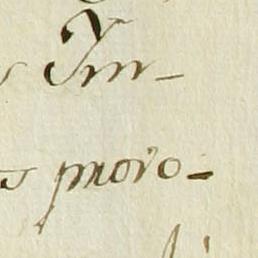 s Im-
s provo-